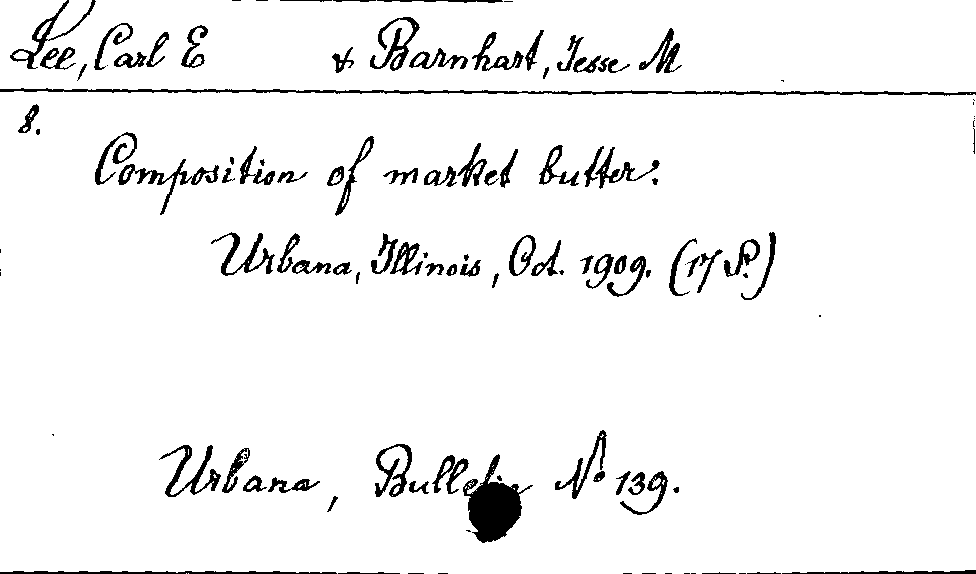 Lee, Carl E & Barnhart, Jesse M
8.
Composition of market butter.
Urbana, Illinois, Oct. 1909. (17 S.)
Urbana, Bulletin No 139.